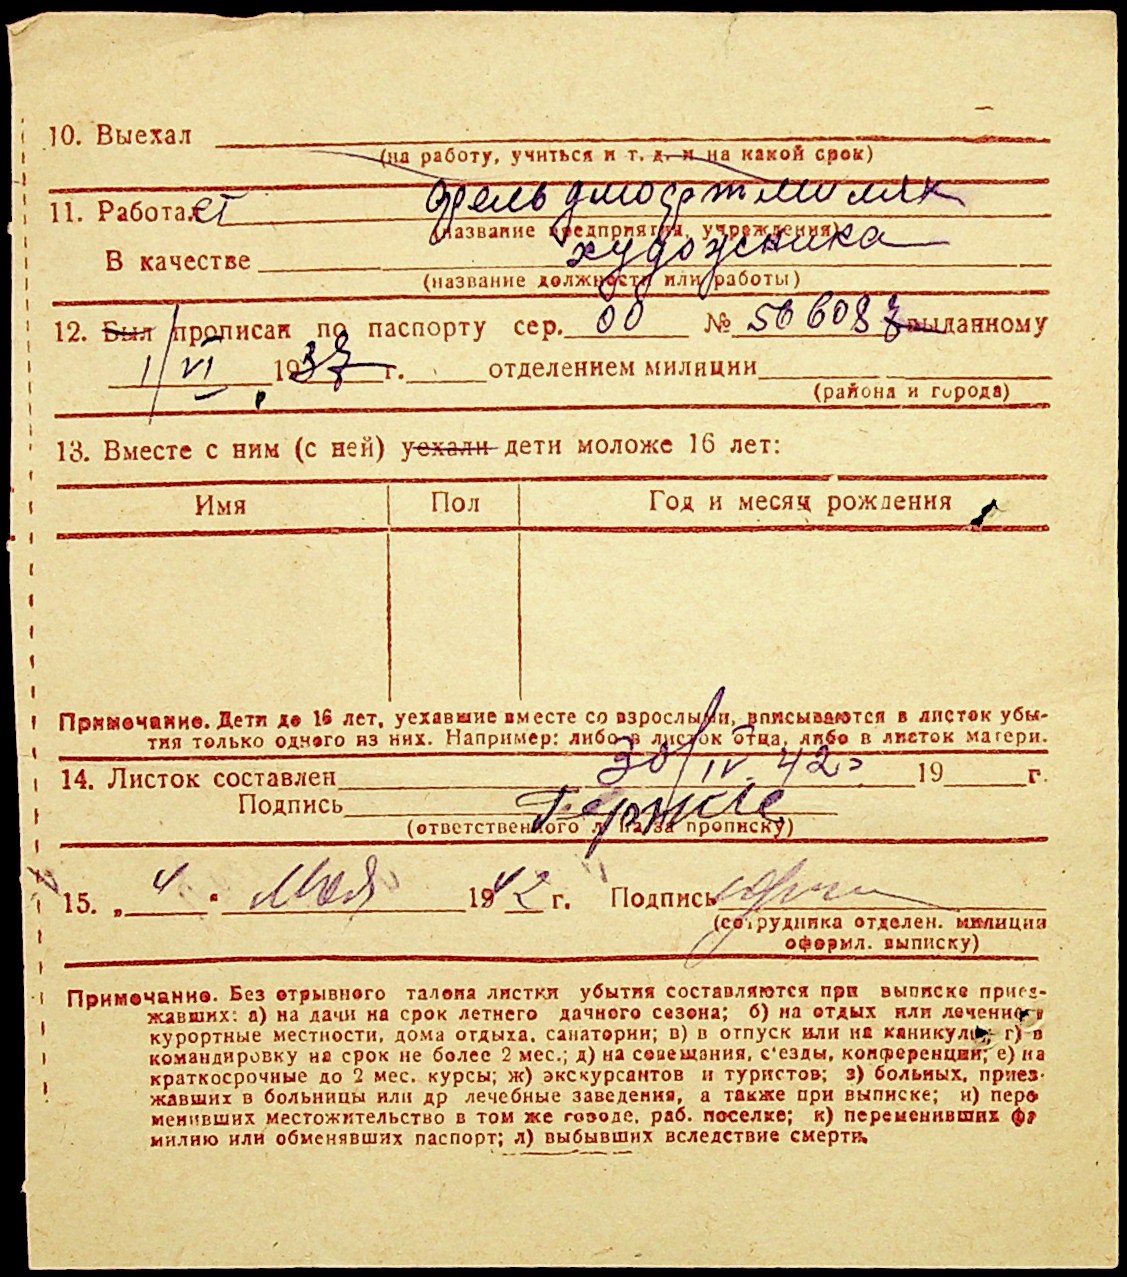 10. Выехал
(на работу, учиться и т. д. и на какой срок)
11. Работает
(название предприятия, учреждения)
В качестве художника
(название должности или работы)
12. Был прописан по паспорту сер. 00 № 566087 выданному
1/VI 1937 г. отделением милиции
(района и города)
13. Вместе с ним (с ней) уехали дети моложе 16 лет:
Имя Пол Год и месяц рождения
Примечание. Дети до 16 лет, уехавшие вместе со взрослыми, вписываются в листок убы-
тия только одного из них. Например: либо в листок отца, либо в листок матери.
14. Листок составлен 30/IV 42 19 г.
Подпись
(ответственного лица за прописку)
15. „4“ Мая 1942 г. Подпись
(сотрудника отделен. милиции
оформл. выписку)
Примечание. Без отрывного талона листки убытия составляются при выписке приез-
жавших: а) на дачи на срок летнего дачного сезона; б) на отдых или лечение в
курортные местности, дома отдыха, санатории; в) в отпуск или на каникулы; г) в
командировку на срок не более 2 мес.; д) на совещания, с'езды, конференции; е) на
краткосрочные до 2 мес. курсы; ж) экскурсантов и туристов; з) больных, приез-
жавших в больницы или др лечебные заведения, а также при выписке; и) пере
менивших местожительство в том же городе, раб. поселке; к) переменивших фа
милию или обменявших паспорт; л) выбывших вследствие смерти.